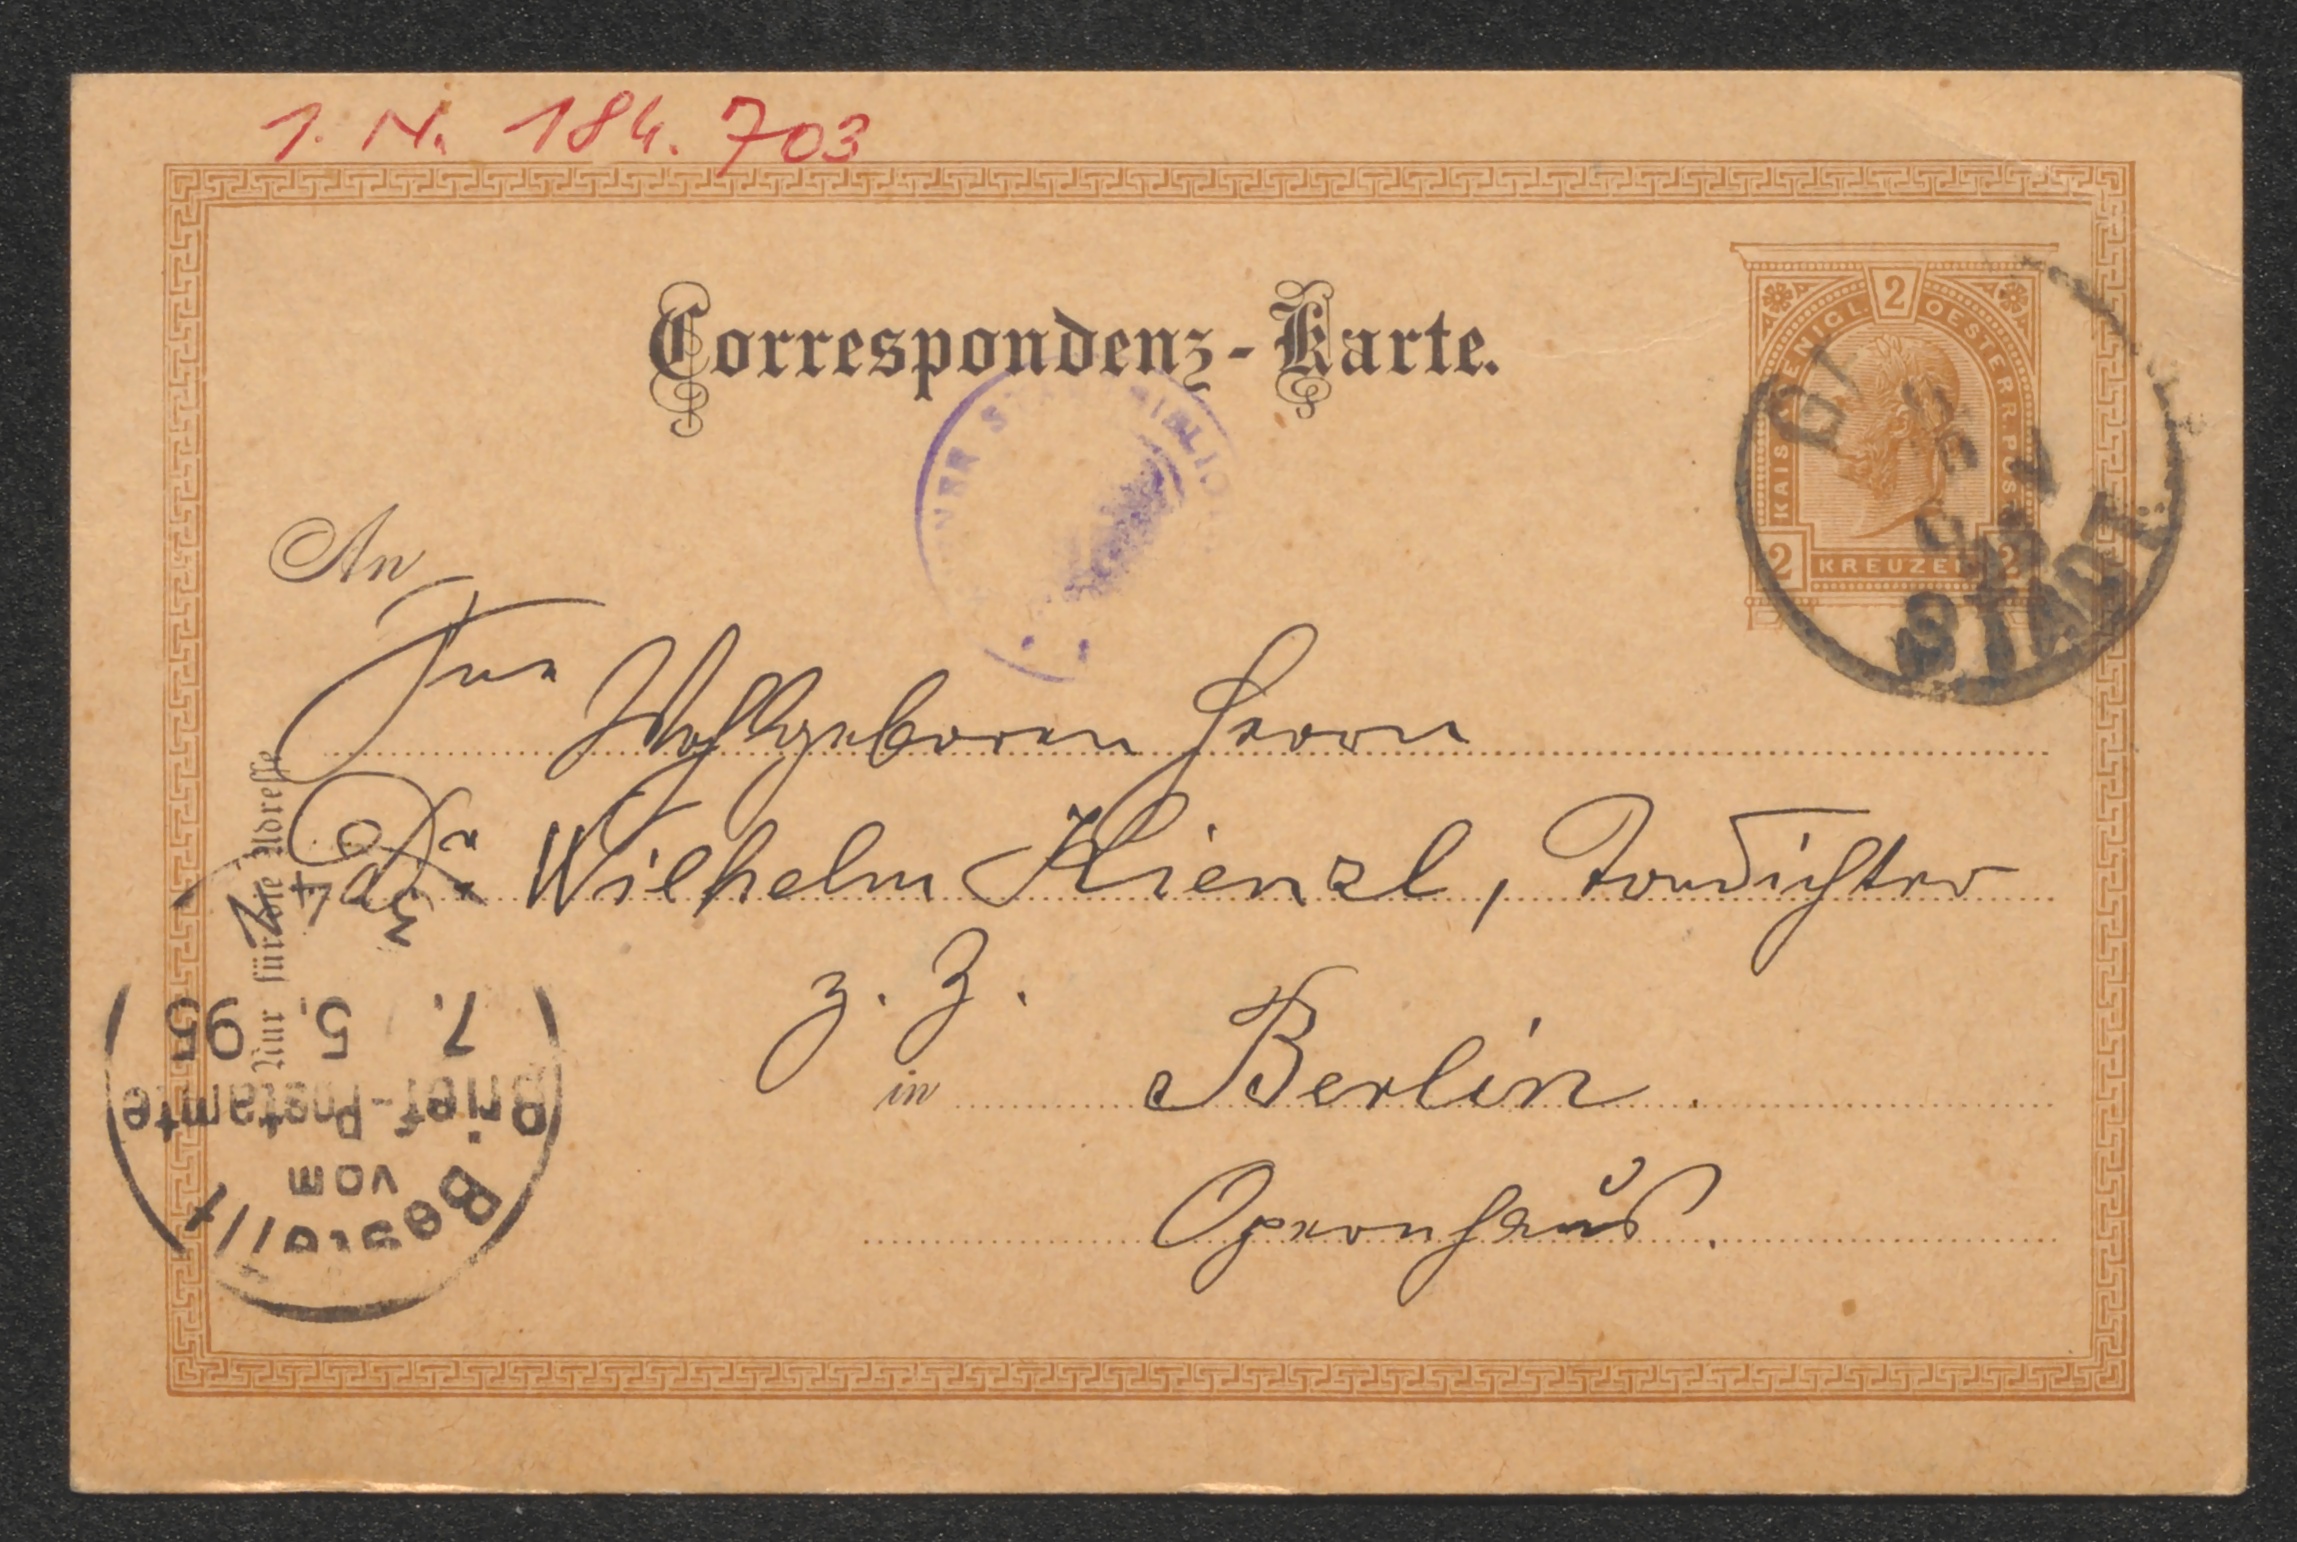 1. N. 184.703
Correspondenz-Karte.
2
KAISERL. KOENIGL. OESTERR. POST
2 KREUZER 2
STADT
An
Seine Wohlgeboren Herrn
Dr Wilhelm Kienzl, Tondichter
z. Z.
in Berlin.
Opernhaus.
Nur für die Adresse
Bestellt
vom
Brief-Postamte
7. 5. 95